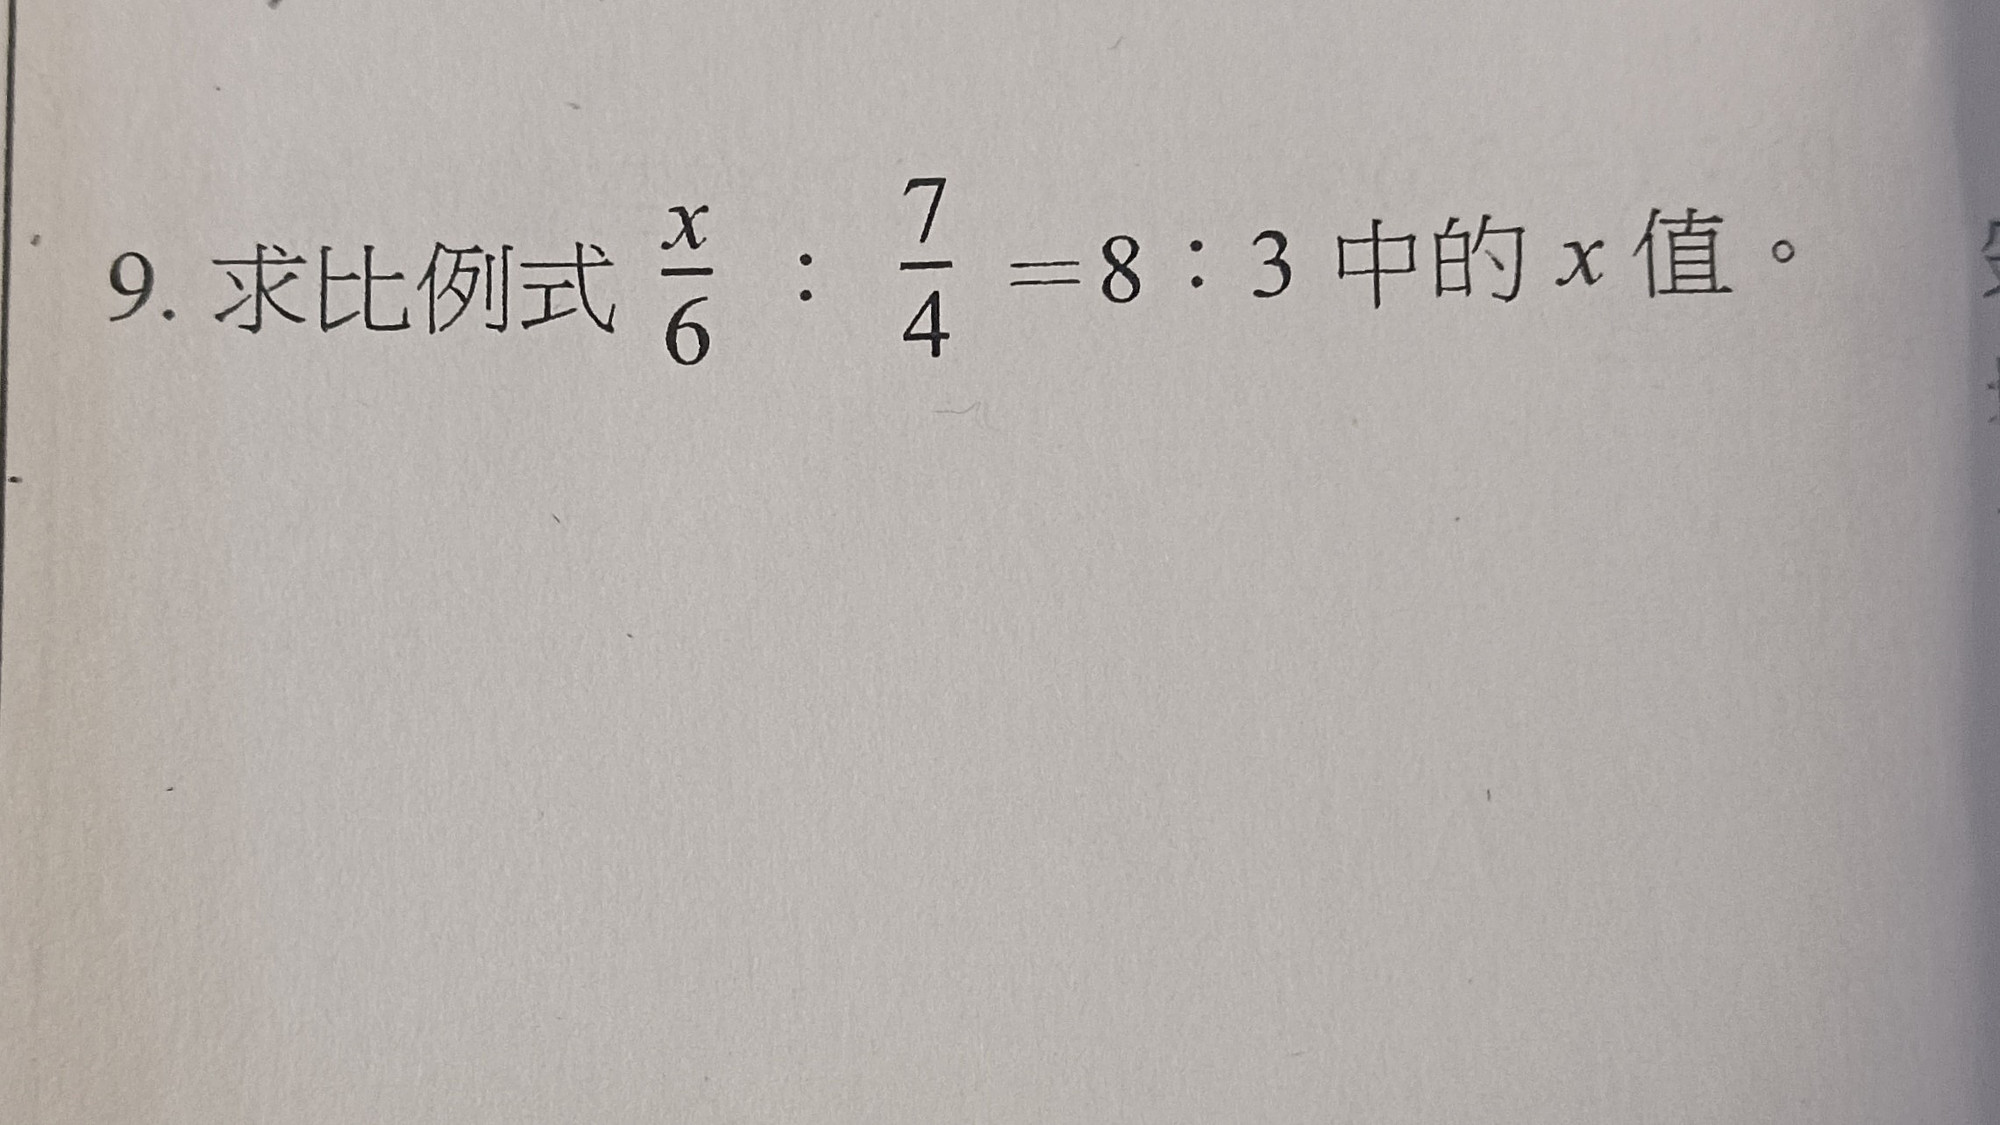 9. 求比例式 x/6 : 7/4 =8:3 中的 x 值。